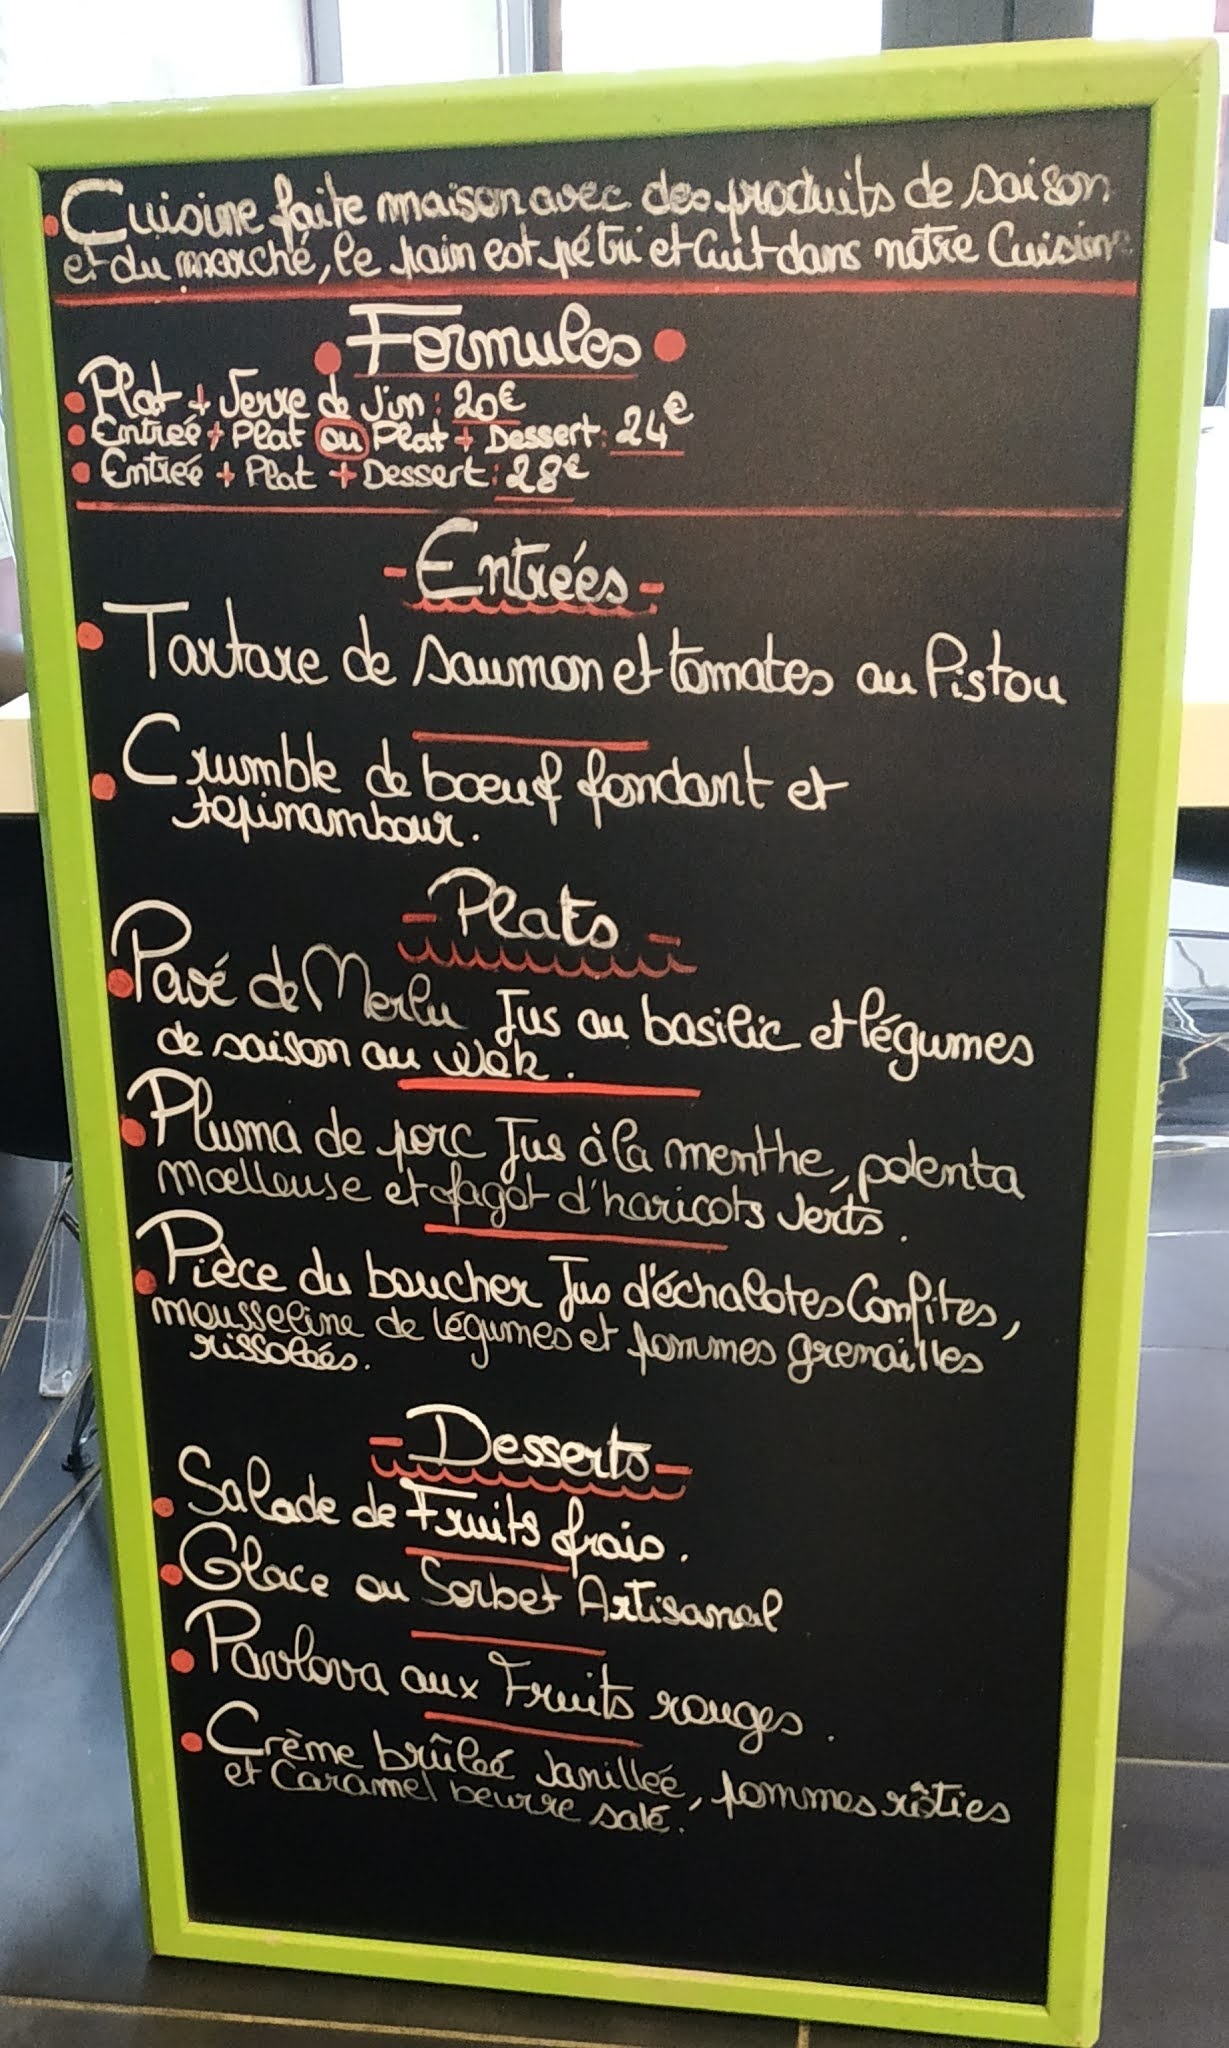 Cuisine faite maison avec des produits de saison
et du marché, le pain est pétri et Cuit dans notre Cuisine
Formules
Plat + Verre de Vin : 20€
Entrée + Plat ou Plat + Dessert : 24€
Entrée + Plat + Dessert : 28€
- Entrées -
Tartare de saumon et tomates au Pistou
Crumble de boeuf fondant et
topinambour.
- Plats -
Pavé de Merlu Jus au basilic et légumes
de saison au wok.
Pluma de porc Jus à la menthe, polenta
moelleuse et fagot d'haricots verts.
Pièce du boucher Jus d'échalotes Confites,
mousseline de légumes et pommes grenailles
rissolées.
- Desserts -
Salade de Fruits frais.
Glace ou Sorbet Artisanal
Pavlova aux Fruits rouges.
Crème brûleé Vanilleé, pommes rôties
et Caramel beurre salé.